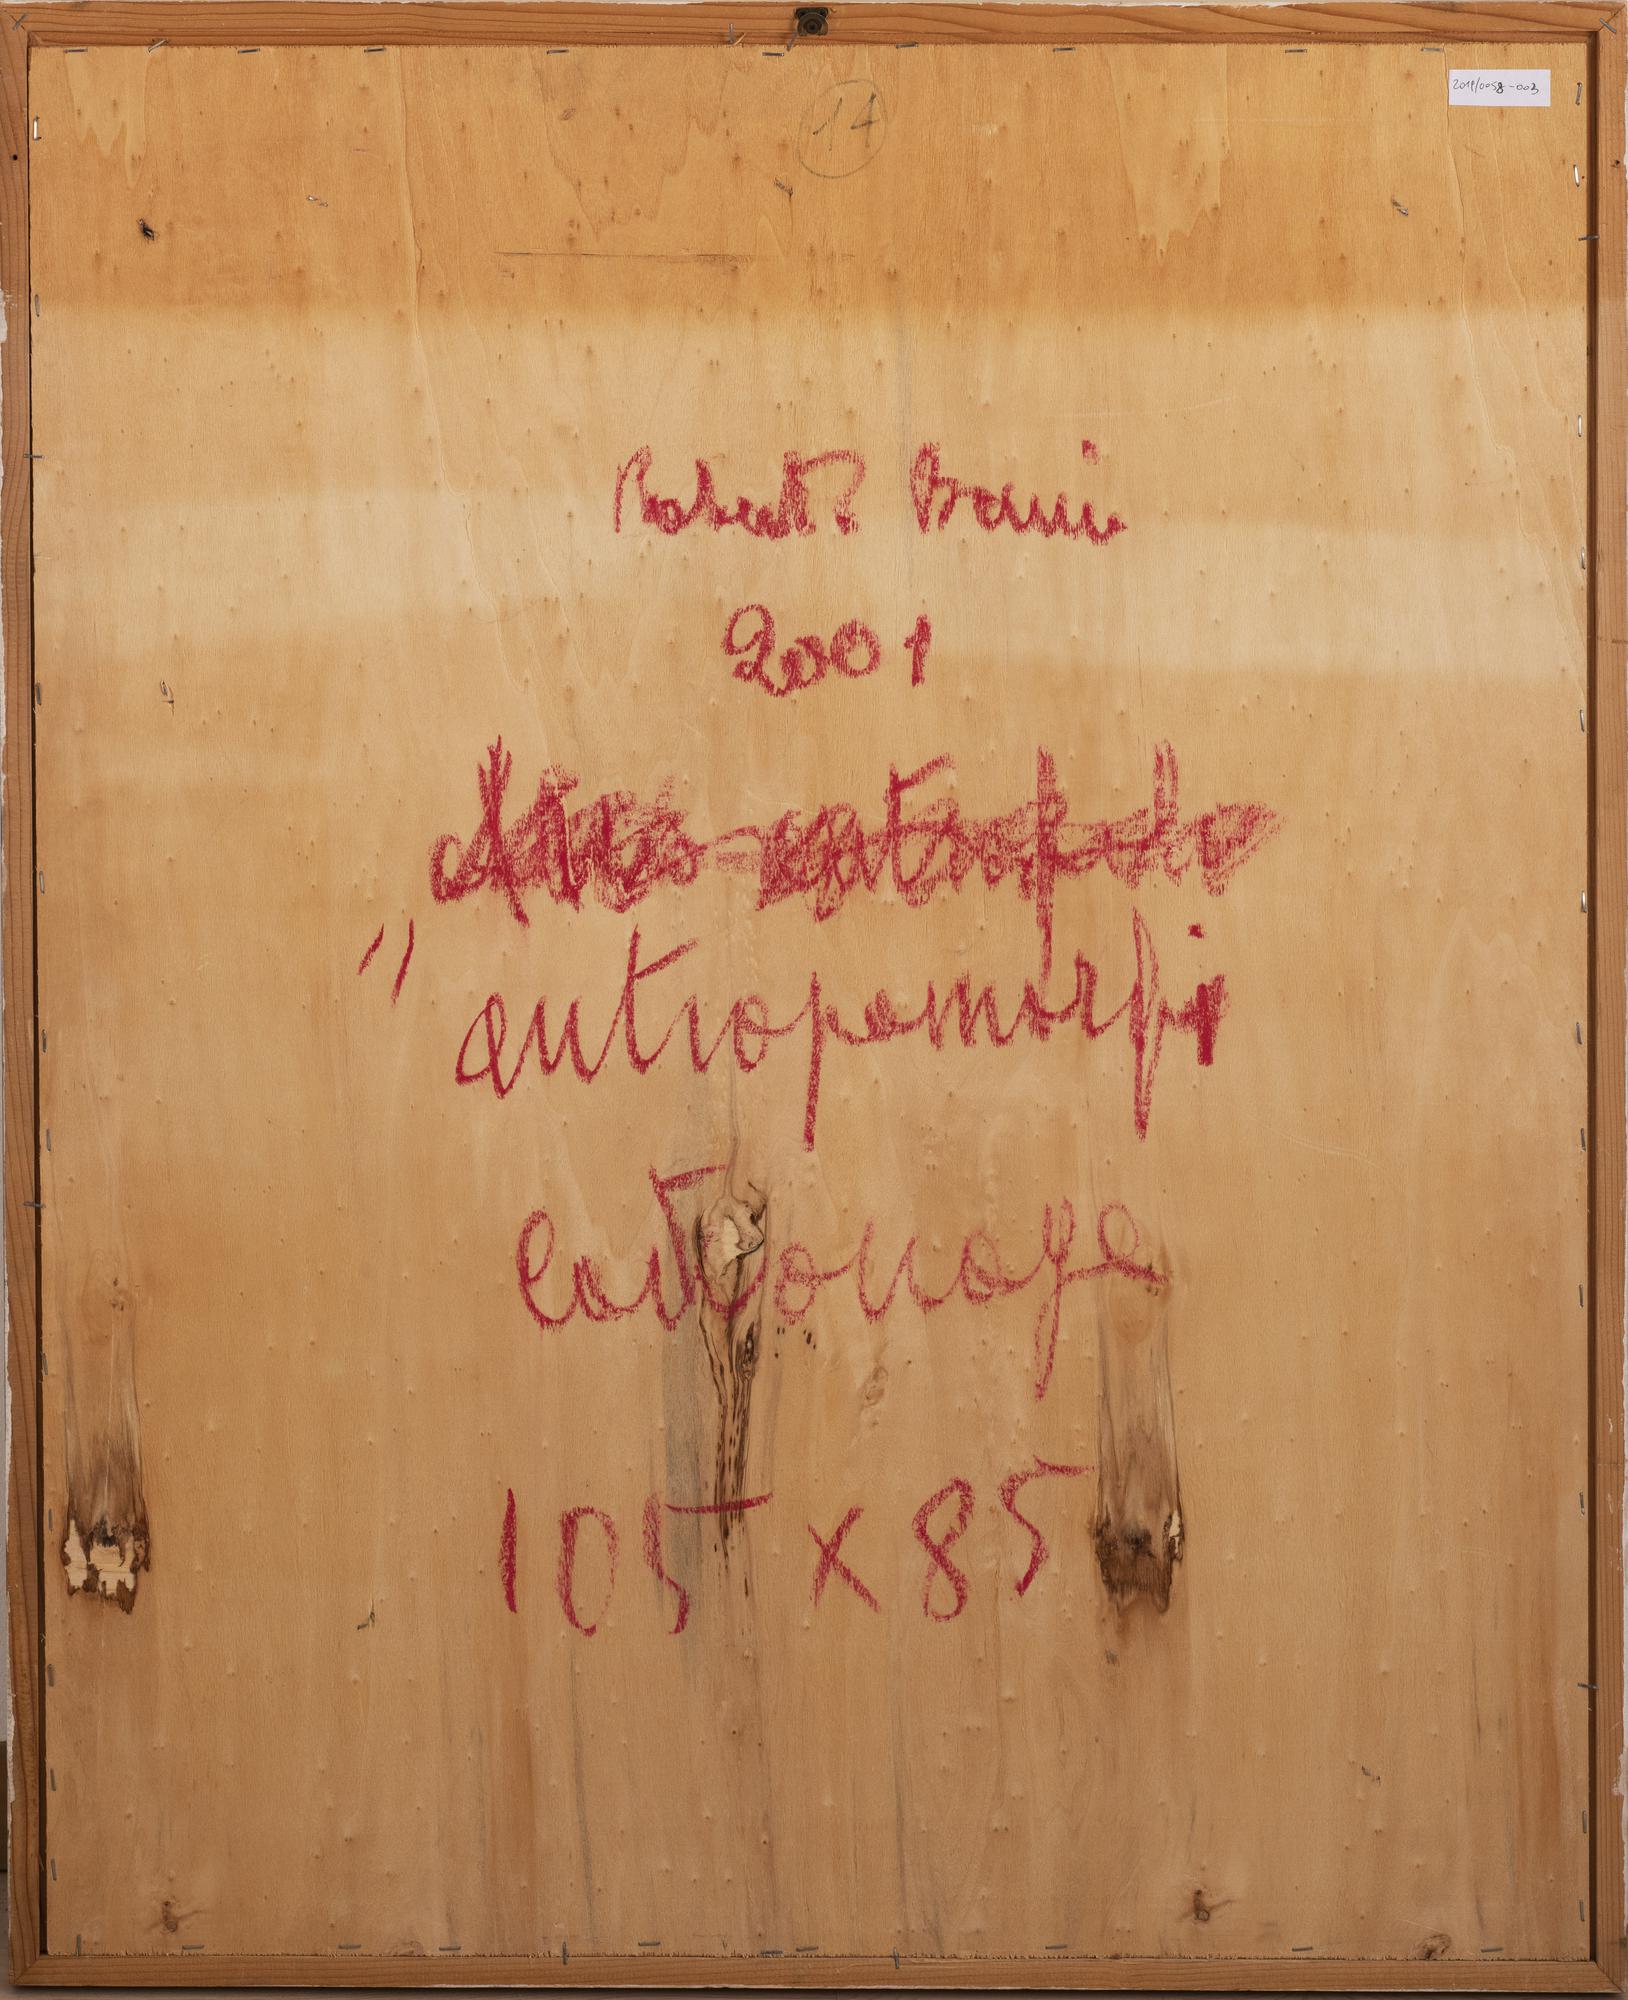 14
2019/0058-003
Roberto Barni
2001
" antropomorfi
cartonage
105 x 85